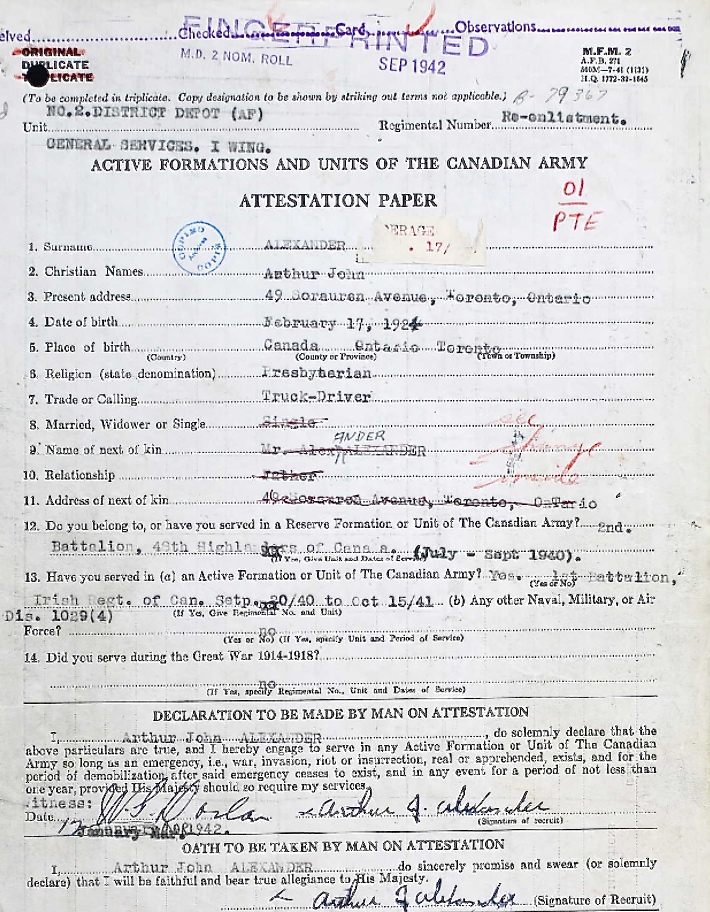 elved Checked Card Observations
FINGERPRINTED
M.D. 2 NOM. ROLL
SEP 1942
ORIGINAL
DUPLICATE
TRIPLICATE
M.F.M. 2
A.F.B. 271
500M—7-41 (1131)
H.Q. 1772-39-1645
(To be completed in triplicate. Copy designation to be shown by striking out terms not applicable.) B-79367
NO.2.DISTRICT DEPOT (AF)
Unit Regimental Number Re-enlistment.
GENERAL SERVICES. I WING.
ACTIVE FORMATIONS AND UNITS OF THE CANADIAN ARMY
ATTESTATION PAPER
01
PTE
ERAGE
. 17/
1. Surname ALEXANDER
2. Christian Names Arthur John
3. Present address 49 Sorauren Avenue, Toronto, Ontario
4. Date of birth February 17, 1924
5. Place of birth Canada Ontario Toronto
(Country) (County or Province) (Town or Township)
6. Religion (state denomination) Presbyterian
7. Trade or Calling Truck-Driver
8. Married, Widower or Single Single
see change inside
ANDER
9. Name of next of kin Mr. Alex ALEXANDER
10. Relationship Father
11. Address of next of kin 49 Sorauren Avenue, Toronto, OnTario
12. Do you belong to, or have you served in a Reserve Formation or Unit of The Canadian Army? 2nd.
Battalion, 48th Highlanders of Canada. (July - Sept 1940).
(If Yes, Give Unit and Dates of Service)
13. Have you served in (a) an Active Formation or Unit of The Canadian Army? Yes. 1st Battalion,
(Yes or No)
Irish Regt. of Can. Setp. 20/40 to Oct 15/41 (b) Any other Naval, Military, or Air
Dis. 1029(4) (If Yes, Give Regimental No. and Unit)
Force? no
(Yes or No) (If Yes, specify Unit and Period of Service)
14. Did you serve during the Great War 1914-1918?
no
(If Yes, specify Regimental No., Unit and Dates of Service)
DECLARATION TO BE MADE BY MAN ON ATTESTATION
I, Arthur John ALEXANDER, do solemnly declare that the
above particulars are true, and I hereby engage to serve in any Active Formation or Unit of The Canadian
Army so long as an emergency, i.e., war, invasion, riot or insurrection, real or apprehended, exists, and for the
period of demobilization after said emergency ceases to exist, and in any event for a period of not less than
one year, provided His Majesty should so require my services.
itness: Arthur J. Alexander
Date (Signature of recruit)
January 1942.
OATH TO BE TAKEN BY MAN ON ATTESTATION
I, Arthur John ALEXANDER do sincerely promise and swear (or solemnly
declare) that I will be faithful and bear true allegiance to His Majesty.
Arthur J Alexander (Signature of Recruit)